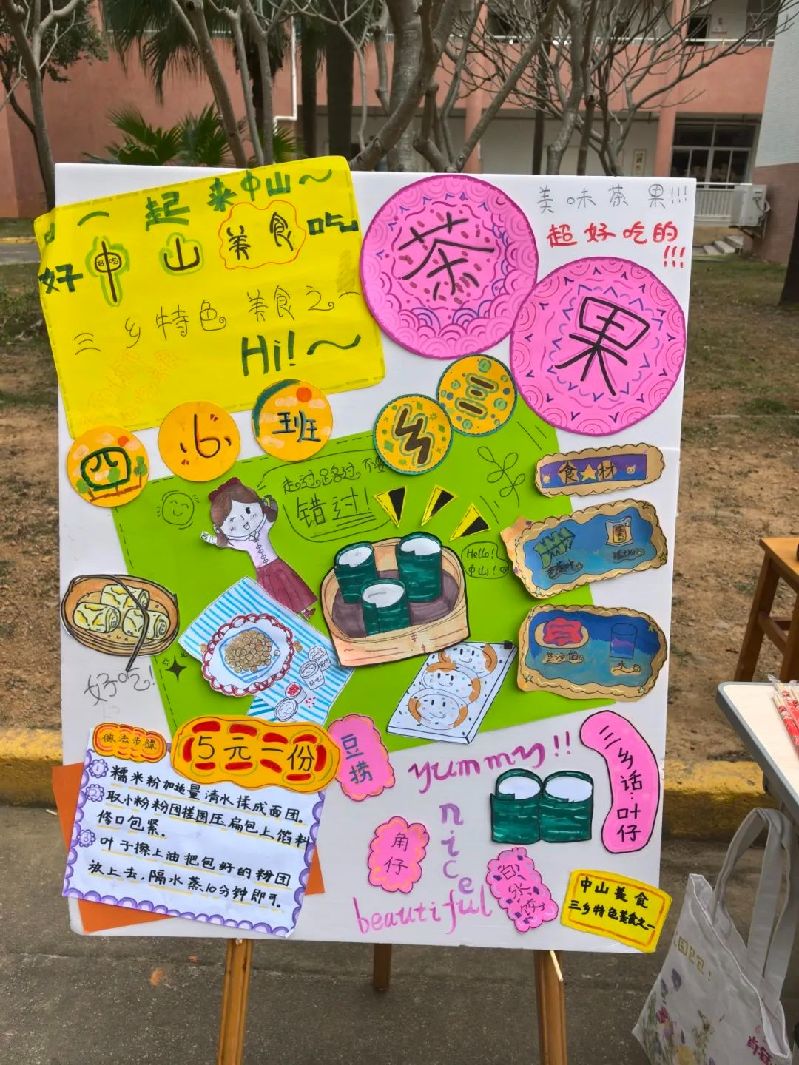 一起来中山～
吃
好中山美食
三乡特色美食之一
Hi!～
茶
果
美味茶果!!!
超好吃的
!!!
四
6
班
三
乡
走过路过不要
错过!
Hello!
中山!
食★材
好吃!
做法步骤
糯米粉加适量清水揉成面团。
取小粉粉团搓圆压扁包上馅料
修口包紧。
叶子擦上油把包好的粉团
放上去,隔水蒸10分钟即可。
5元二份
豆捞
yummy!!
nice
beautiful
角仔
三乡话:叶仔
中山美食
三乡特色美食之一